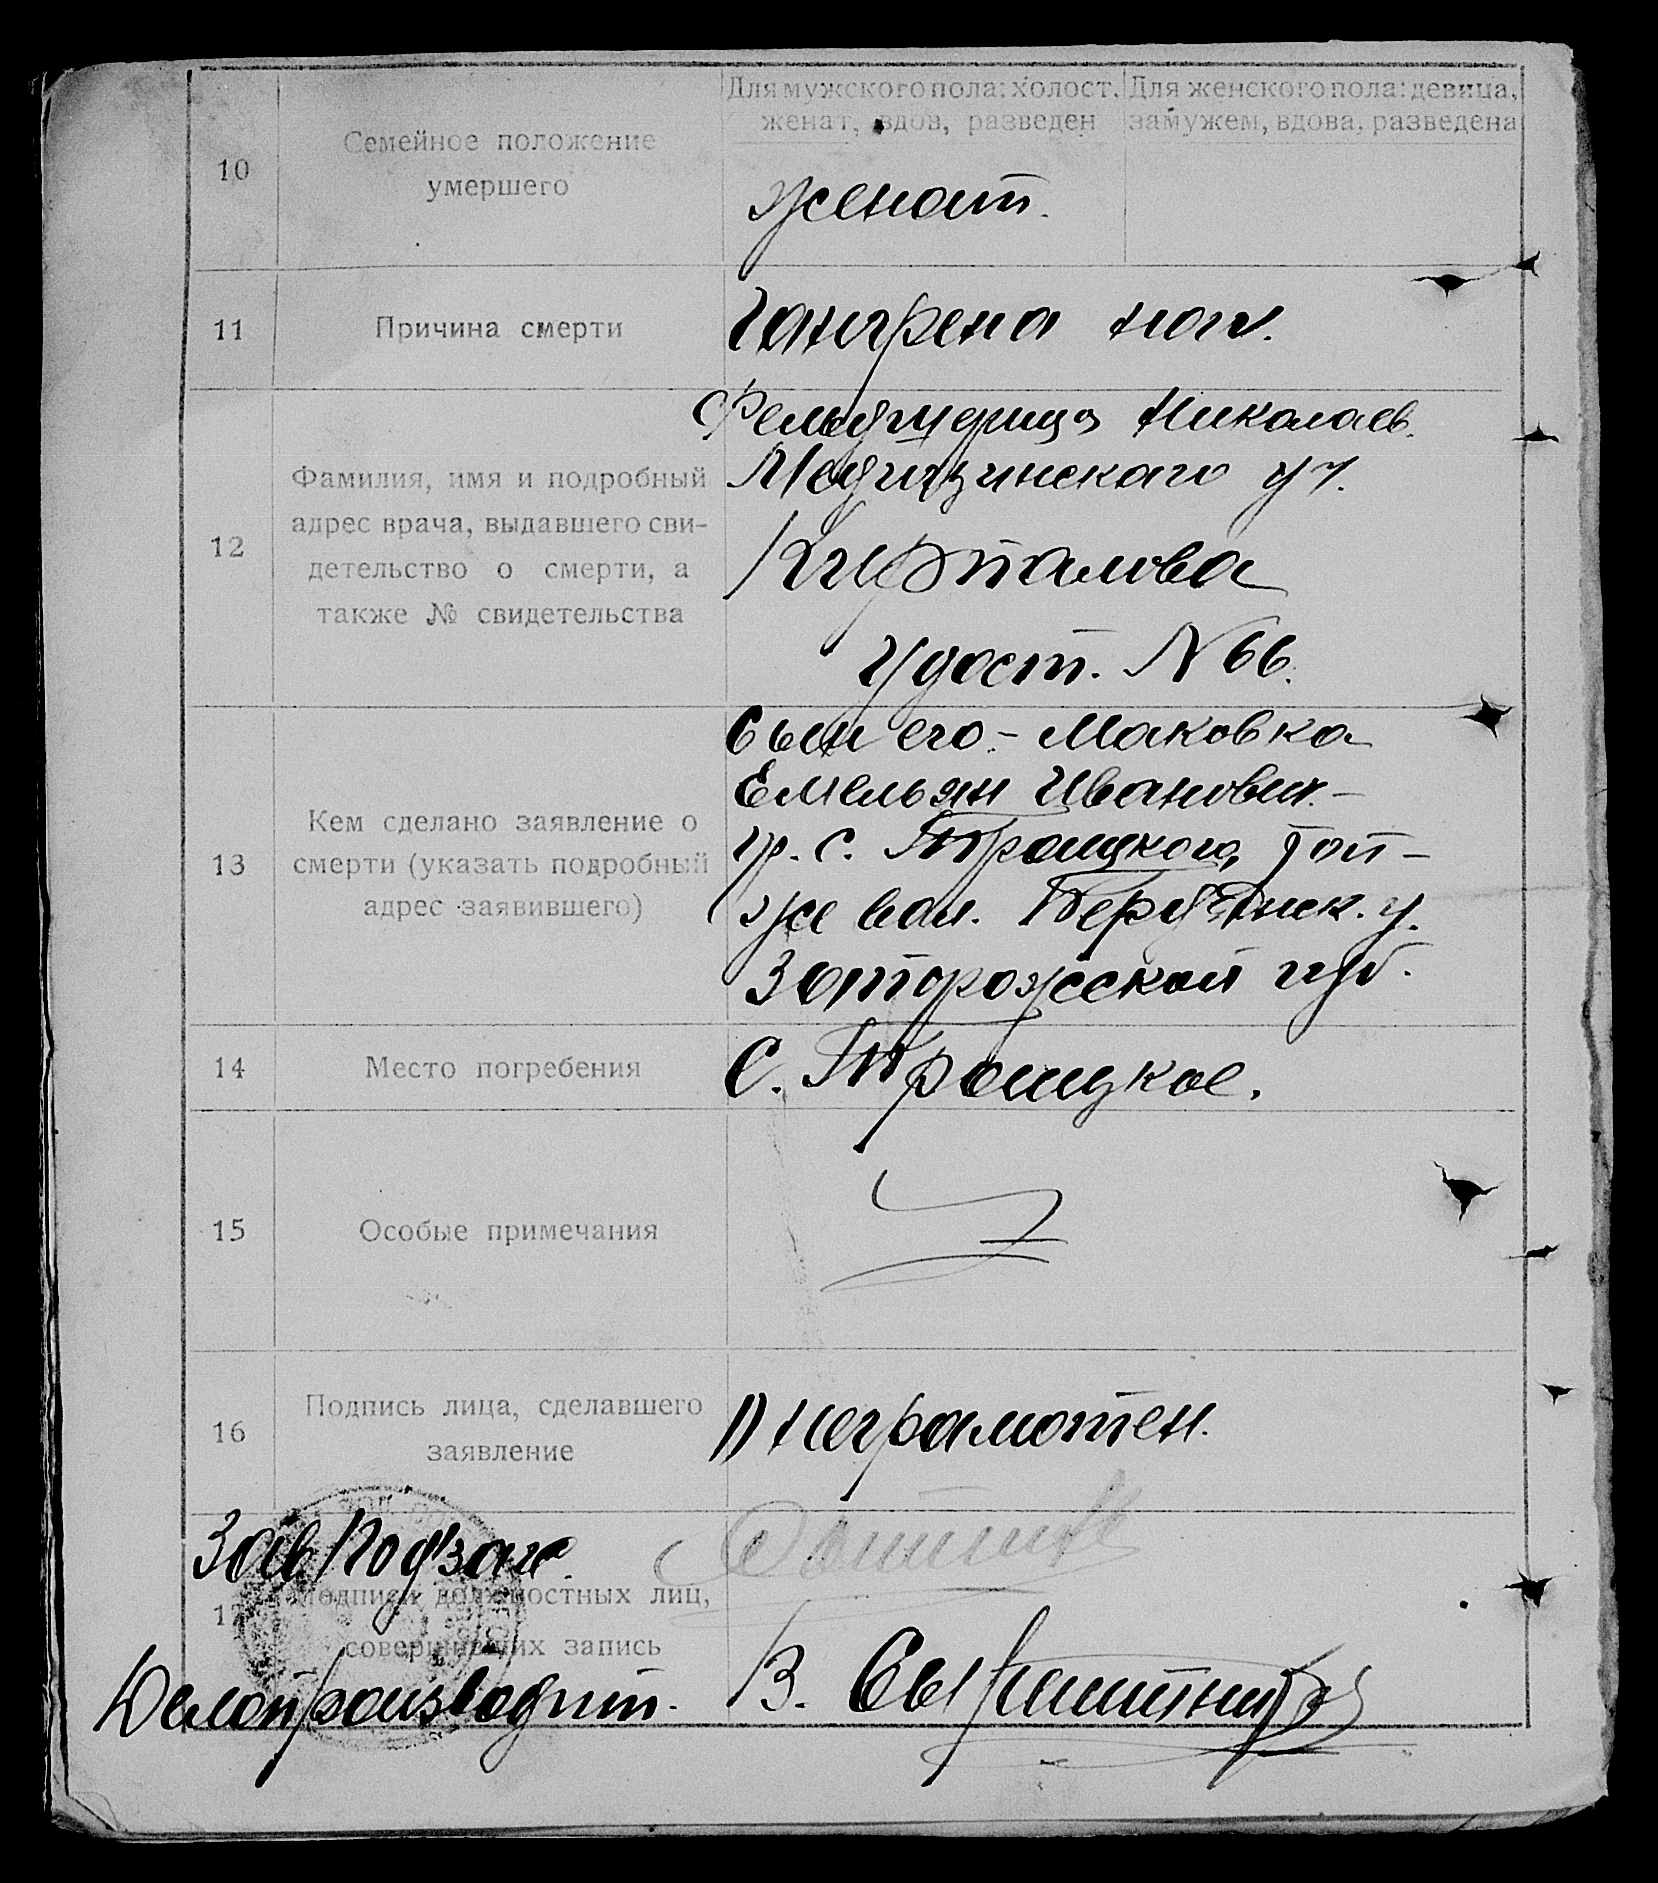 Для мужского пола: холост, женат, вдов, разведен
Для женского пола: девица, замужем, вдова, разведена
10
Семейное положение
умершего
женат.
11
Причина смерти
Гангрена ног.
12
Фамилия, имя и подробный
адрес врача, выдавшего сви-
детельство о смерти, а
также № свидетельства
Фельдшерица Николаев.
Медицинскаго уч.
Удост. N 66.
13
Кем сделано заявление о
смерти (указать подробный
адрес заявившего)
Сын его - Маковка
Емельян Иванович -
гр. с. Троицкого, той-
же вол. Бердянск. у.
Запорожской губ.
14
Место погребения
С. Троицкое.
15
Особые примечания
16
Подпись лица, сделавшего
заявление
неграмотен.
Зав. Подзаг.
17
Подписи должностных лиц,
совершивших запись
Делопроизводит.
В.